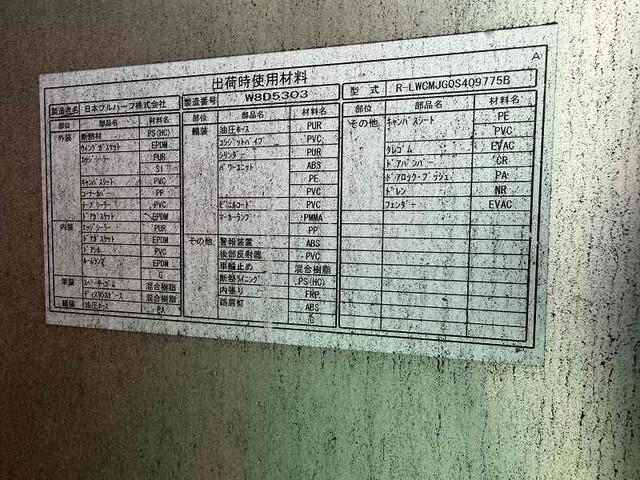 A
出荷時使用材料
製造者名 日本フルハーフ株式会社 製造番号 W8D5303 型式 R-LWCMJGOS409775B
部位 部品名 材料名
外装 断熱材 PS(HC)
ウイングガスケット EPDM
エッジシーラー PUR
SI
キャンバスシート PVC
コーナーカバー PP
テープシーラー PVC
ドアガスケット EPDM
内装 エッジシーラー PUR
ドアガスケット EPDM
PVC
ルームランプ EPDM
G
架装 スペーサーゴム 混合樹脂
ディスタンスピース 混合樹脂
艤装 油圧ホース PA
部位 部品名 材料名
艤装 油圧ホース PUR
コンジットパイプ PVC
シリンダー PUR
パワーユニット ABS
PE
PVC
ビニルコード PVC
マーカーランプ PMMA
PP
その他 警報装置 ABS
後部反射器 PVC
車輪止め 混合樹脂
断熱ライニング PS(HC)
内張り FRP
路肩灯 ABS
G
部位 部品名 材料名
その他 キャンバスシート PE
PVC
タレゴム EVAC
ドアバンパー CR
ドアロック・ブッシュ PA
ドレン NR
フェンダー EVAC